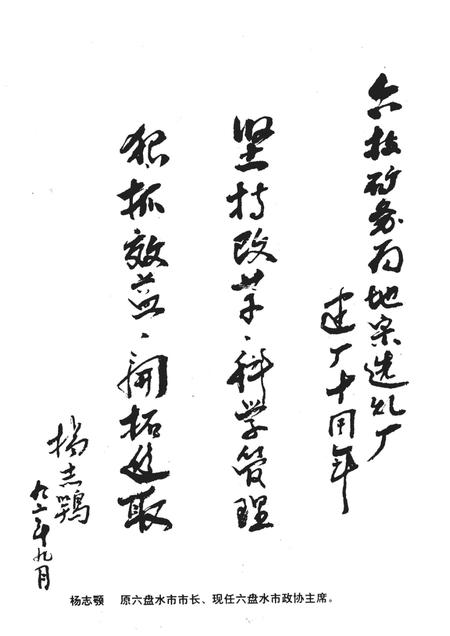 六枝矿务局地宗选煤厂
建厂十周年
坚持改革、科学管理
狠抓效益、开拓进取
杨志鹗
九二年九月
杨志颚　原六盘水市市长、现任六盘水市政协主席。